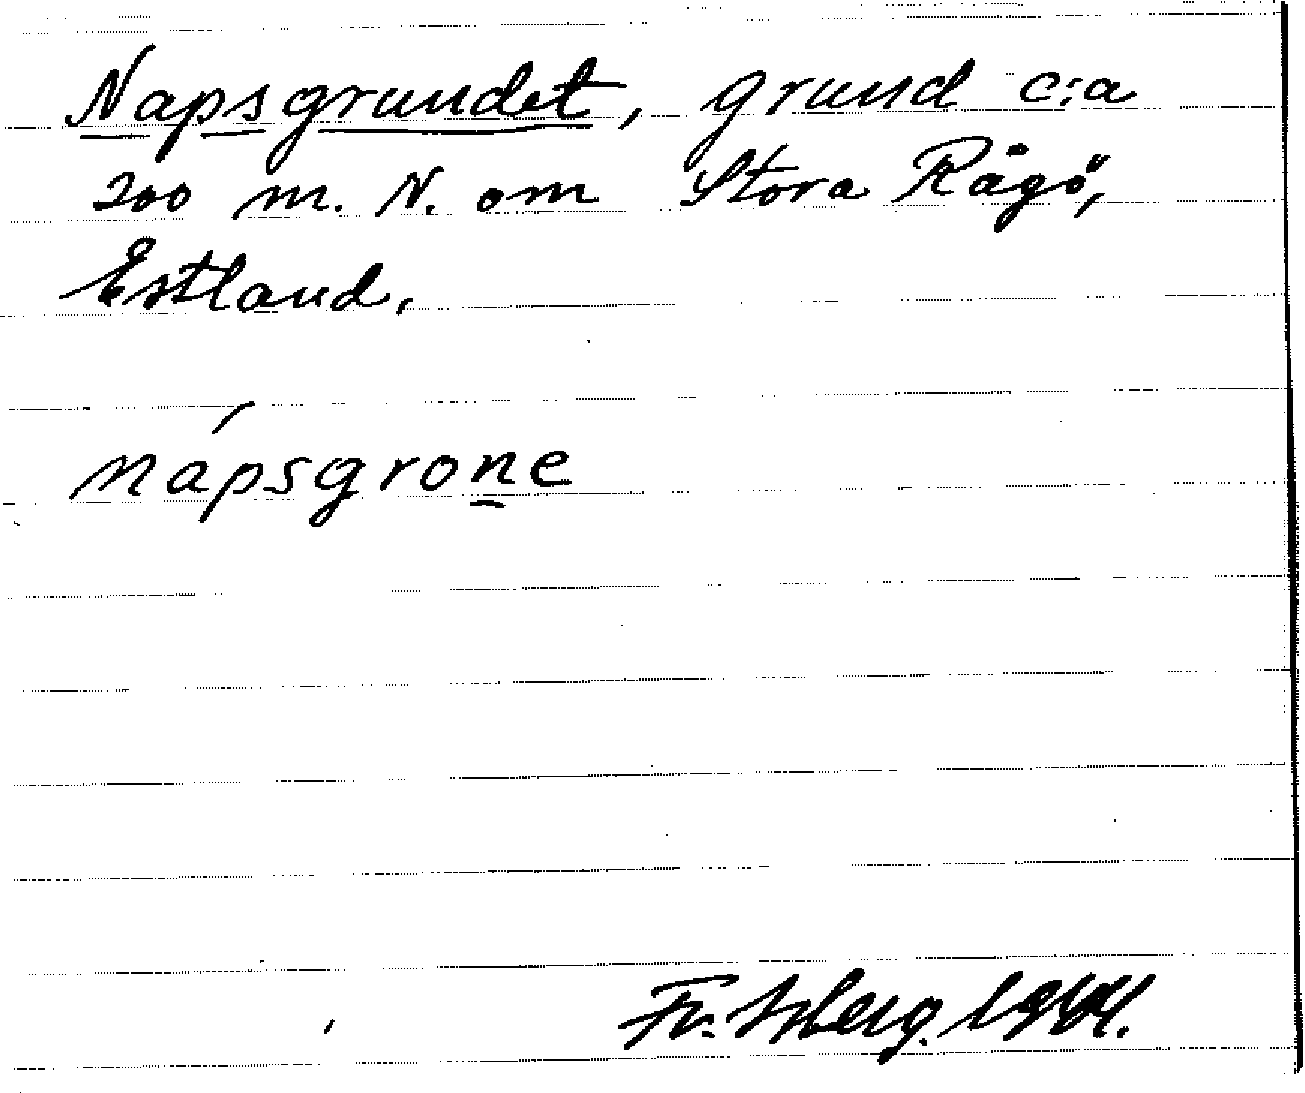 Napsgrundet, grund c:a
200 m. N. om Stora Rågö,
Estland.
nápsgrone
Fr. Isberg. 1944.